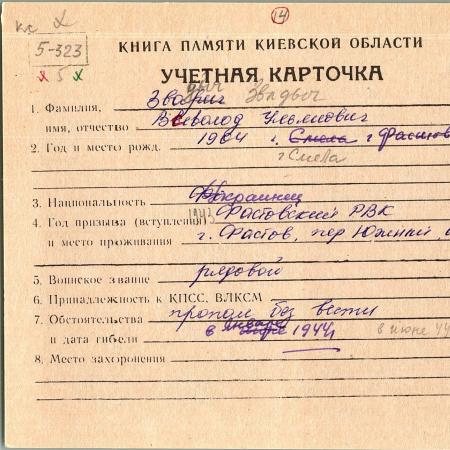 14
5-323
х 5 х
КНИГА ПАМЯТИ КИЕВСКОЙ ОБЛАСТИ
УЧЕТНАЯ КАРТОЧКА
дыч
1. Фамилия, Звадыч
имя, отчество Всеволод
2. Год и место рожд. 1904 г. Смела г Фастов
г Смела
3. Национальность Украинец
4. Год призыва (вступления) 1943 Фастовский РВК
и место проживания г. Фастов, пер Южный,
5. Воинское звание рядовой
6. Принадлежность к КПСС, ВЛКСМ
7. Обстоятельства пропал без вести
и дата гибели в январе 1944 в июне 44
8. Место захоронения